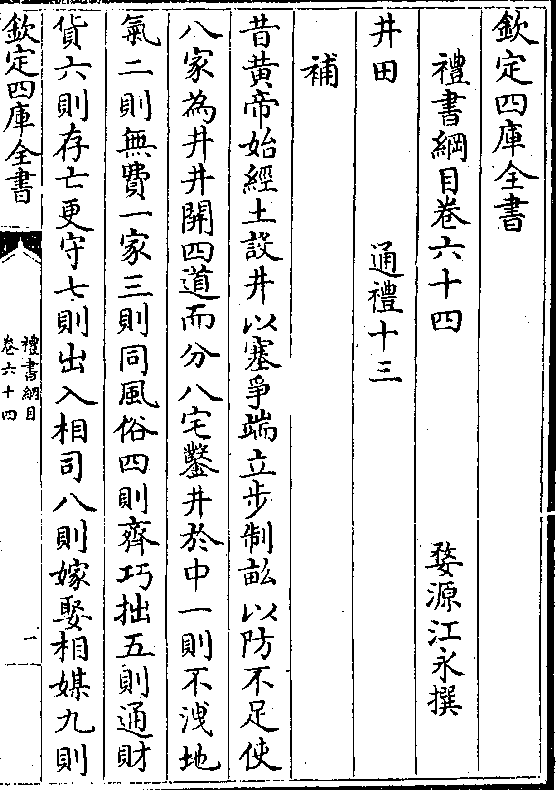 欽定四庫全書
禮書綱目卷六十四
婺源江永撰
井田 通禮十三
補
昔黄帝始經土設井以塞爭端立步制畝以防不足使
八家為井井開四道而分八宅鑿井於中一則不洩地
氣二則無費一家三則同風俗四則齊巧拙五則通財
貨六則存亡更守七則出入相司八則嫁娶相媒九則
欽定四庫全書
禮書綱目
卷六十四
一